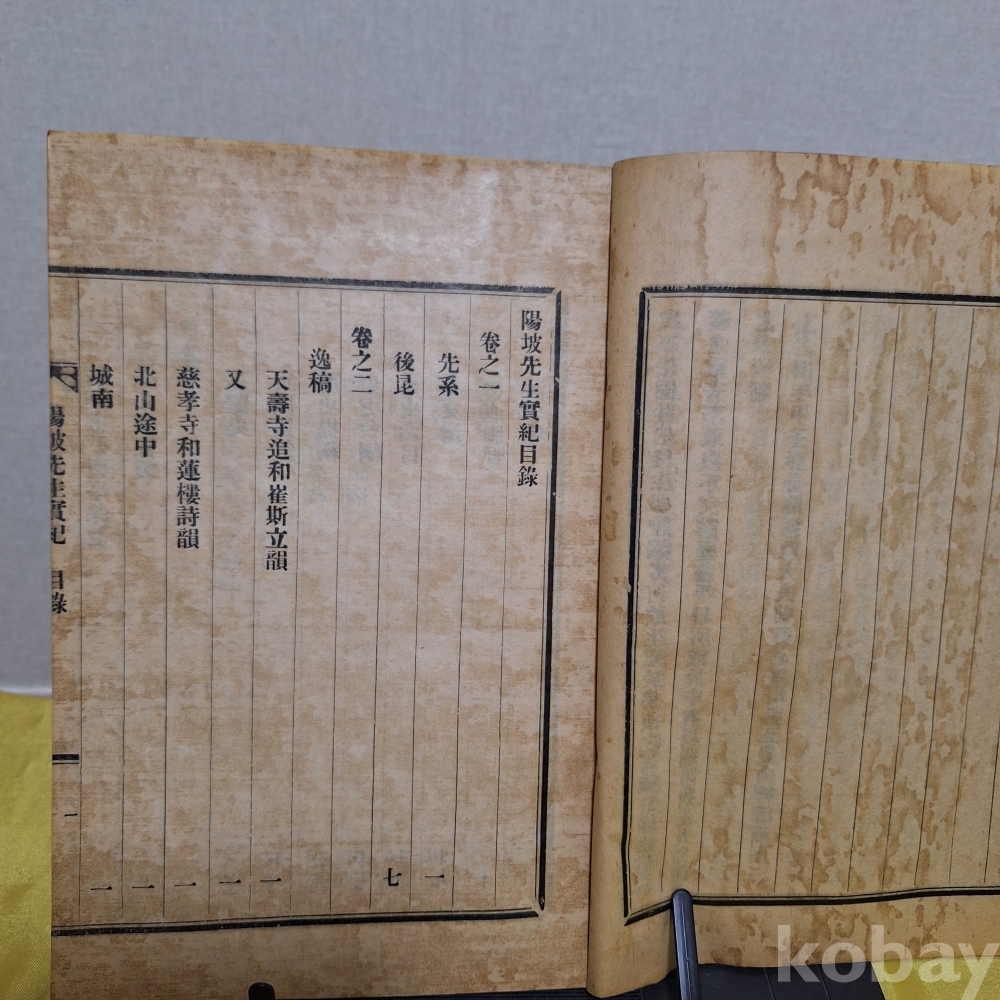 陽坡先生實紀目錄
卷之一
先系 一
後昆 七
卷之二
逸稿
天壽寺追和崔斯立韻 一
又 一
慈孝寺和蓮樓詩韻 一
北山途中 一
城南 一
陽坡先生實紀 目錄 一
kobay